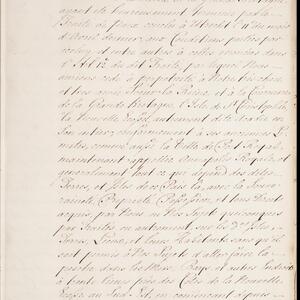 Traité de paix conclu à Utrecht
d'Avril dernier, aux Conditions portées par
iceluy et entre autres à celles énoncées dans
l'Art. 12. du dit Traité, par lequel Nous
avions cédé à perpétuité à Notre très chere
et très amée Soeur la Reine, et à la Couronne
de la Grande Bretagne, l'Isle de St. Christophle
La Nouvelle Ecosse, autrement dite Acadie en
son entier, conformément à ses anciennes Li-
mites, comme aussi la Ville de Port Royal,
maintenant appellée Annapolis Royale, et
généralement tout ce qui dépend des dites
Terres, et Isles de ce Païs la, avec la Souve-
raineté, Propriété, Possession, et tous Droits
acquis, par Nous ou Nos Sujets quelconques
par Traités ou autrement, sur les dites Isles,
Terres, Lieux, et leurs Habitants sans qu'il
soit permis à Nos Sujets d'aller faire la
pesche dans les Mers, Bayes et autres Endroits
à trente lieues près des Côtes de la Nouvelle
Ecosse au Sud Est, en commençant à puis